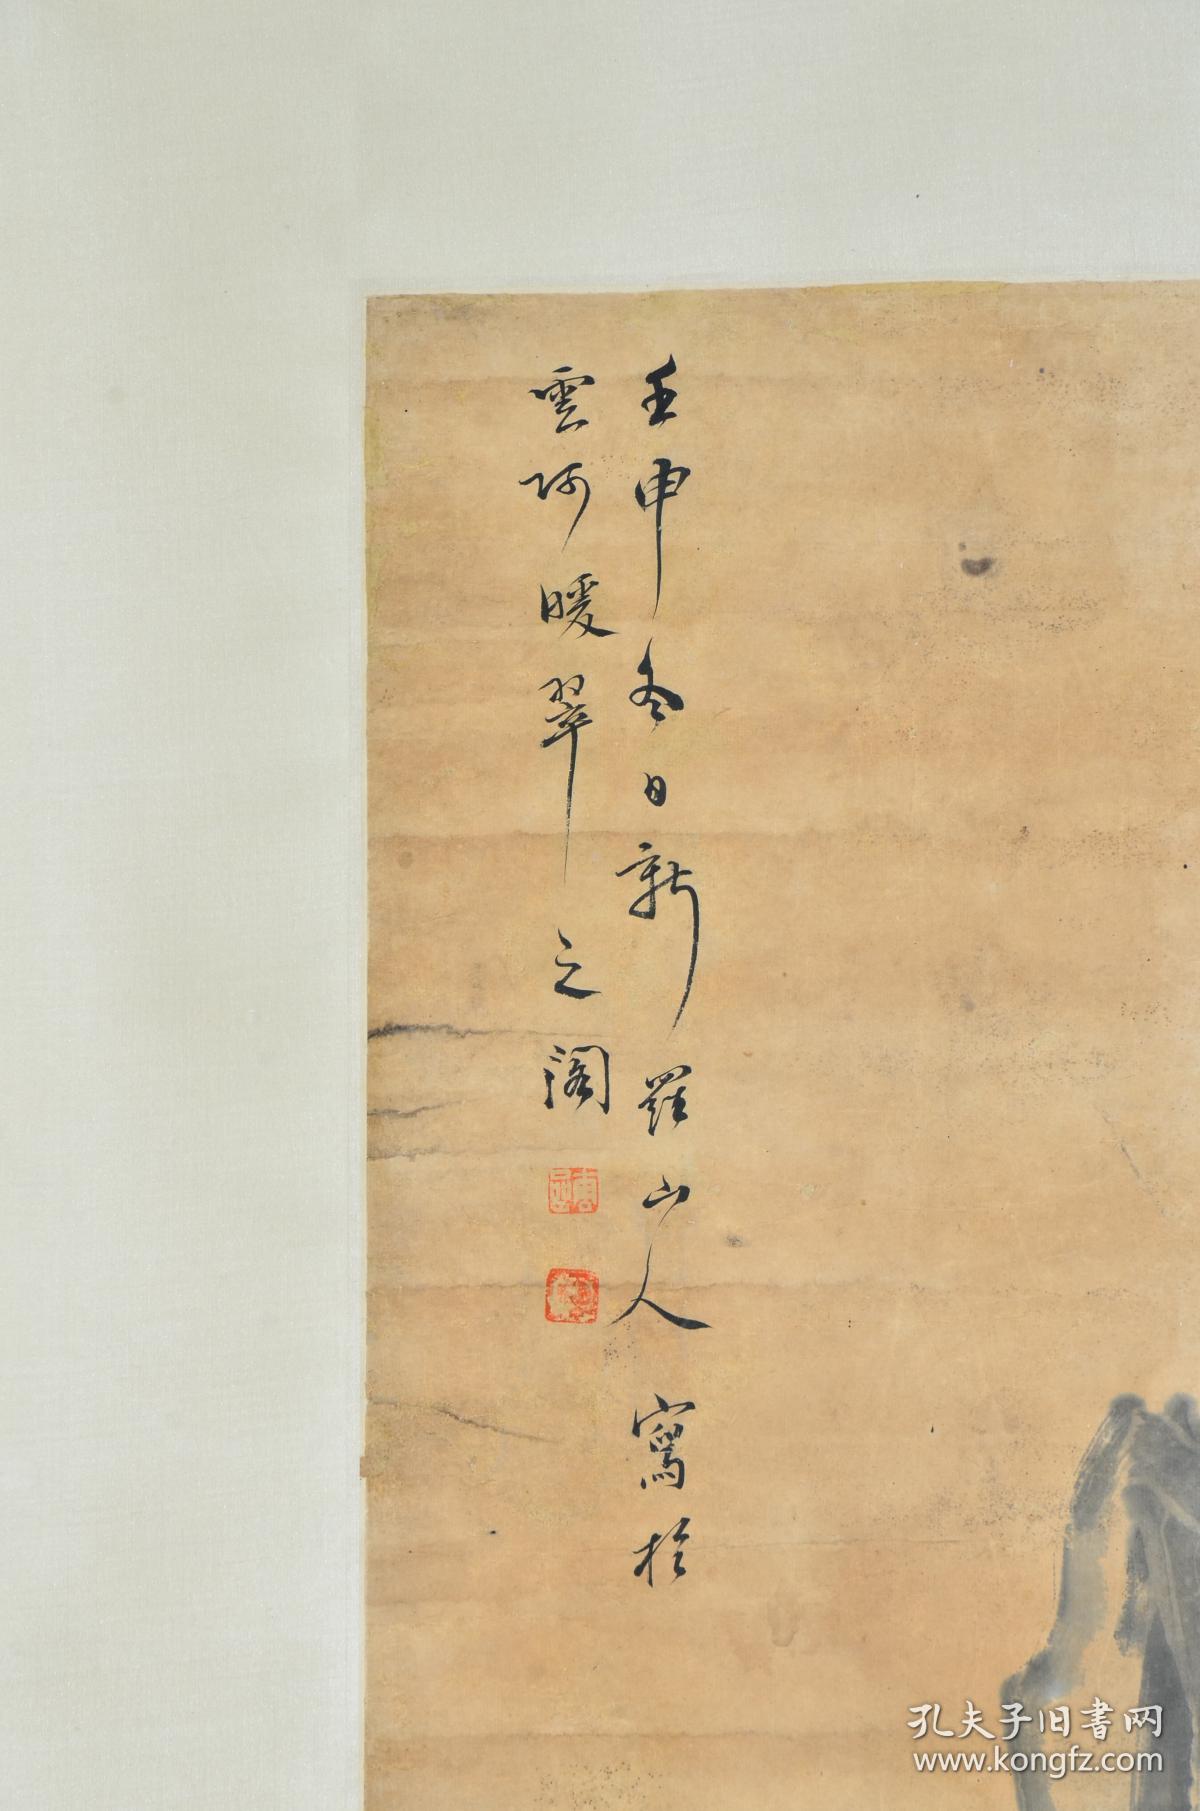 壬申冬日新羅山人寫於
雲阿暖翠之阁
孔夫子旧書网
www.kongfz.com